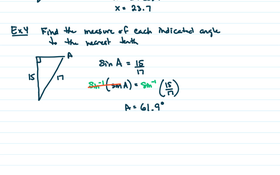 x = 23.7
Ex 4 Find the measure of each indicated angle
to the nearest tenth
A
15
17
sin A = 15/17
sin⁻¹(sin A) = sin⁻¹(15/17)
A = 61.9°